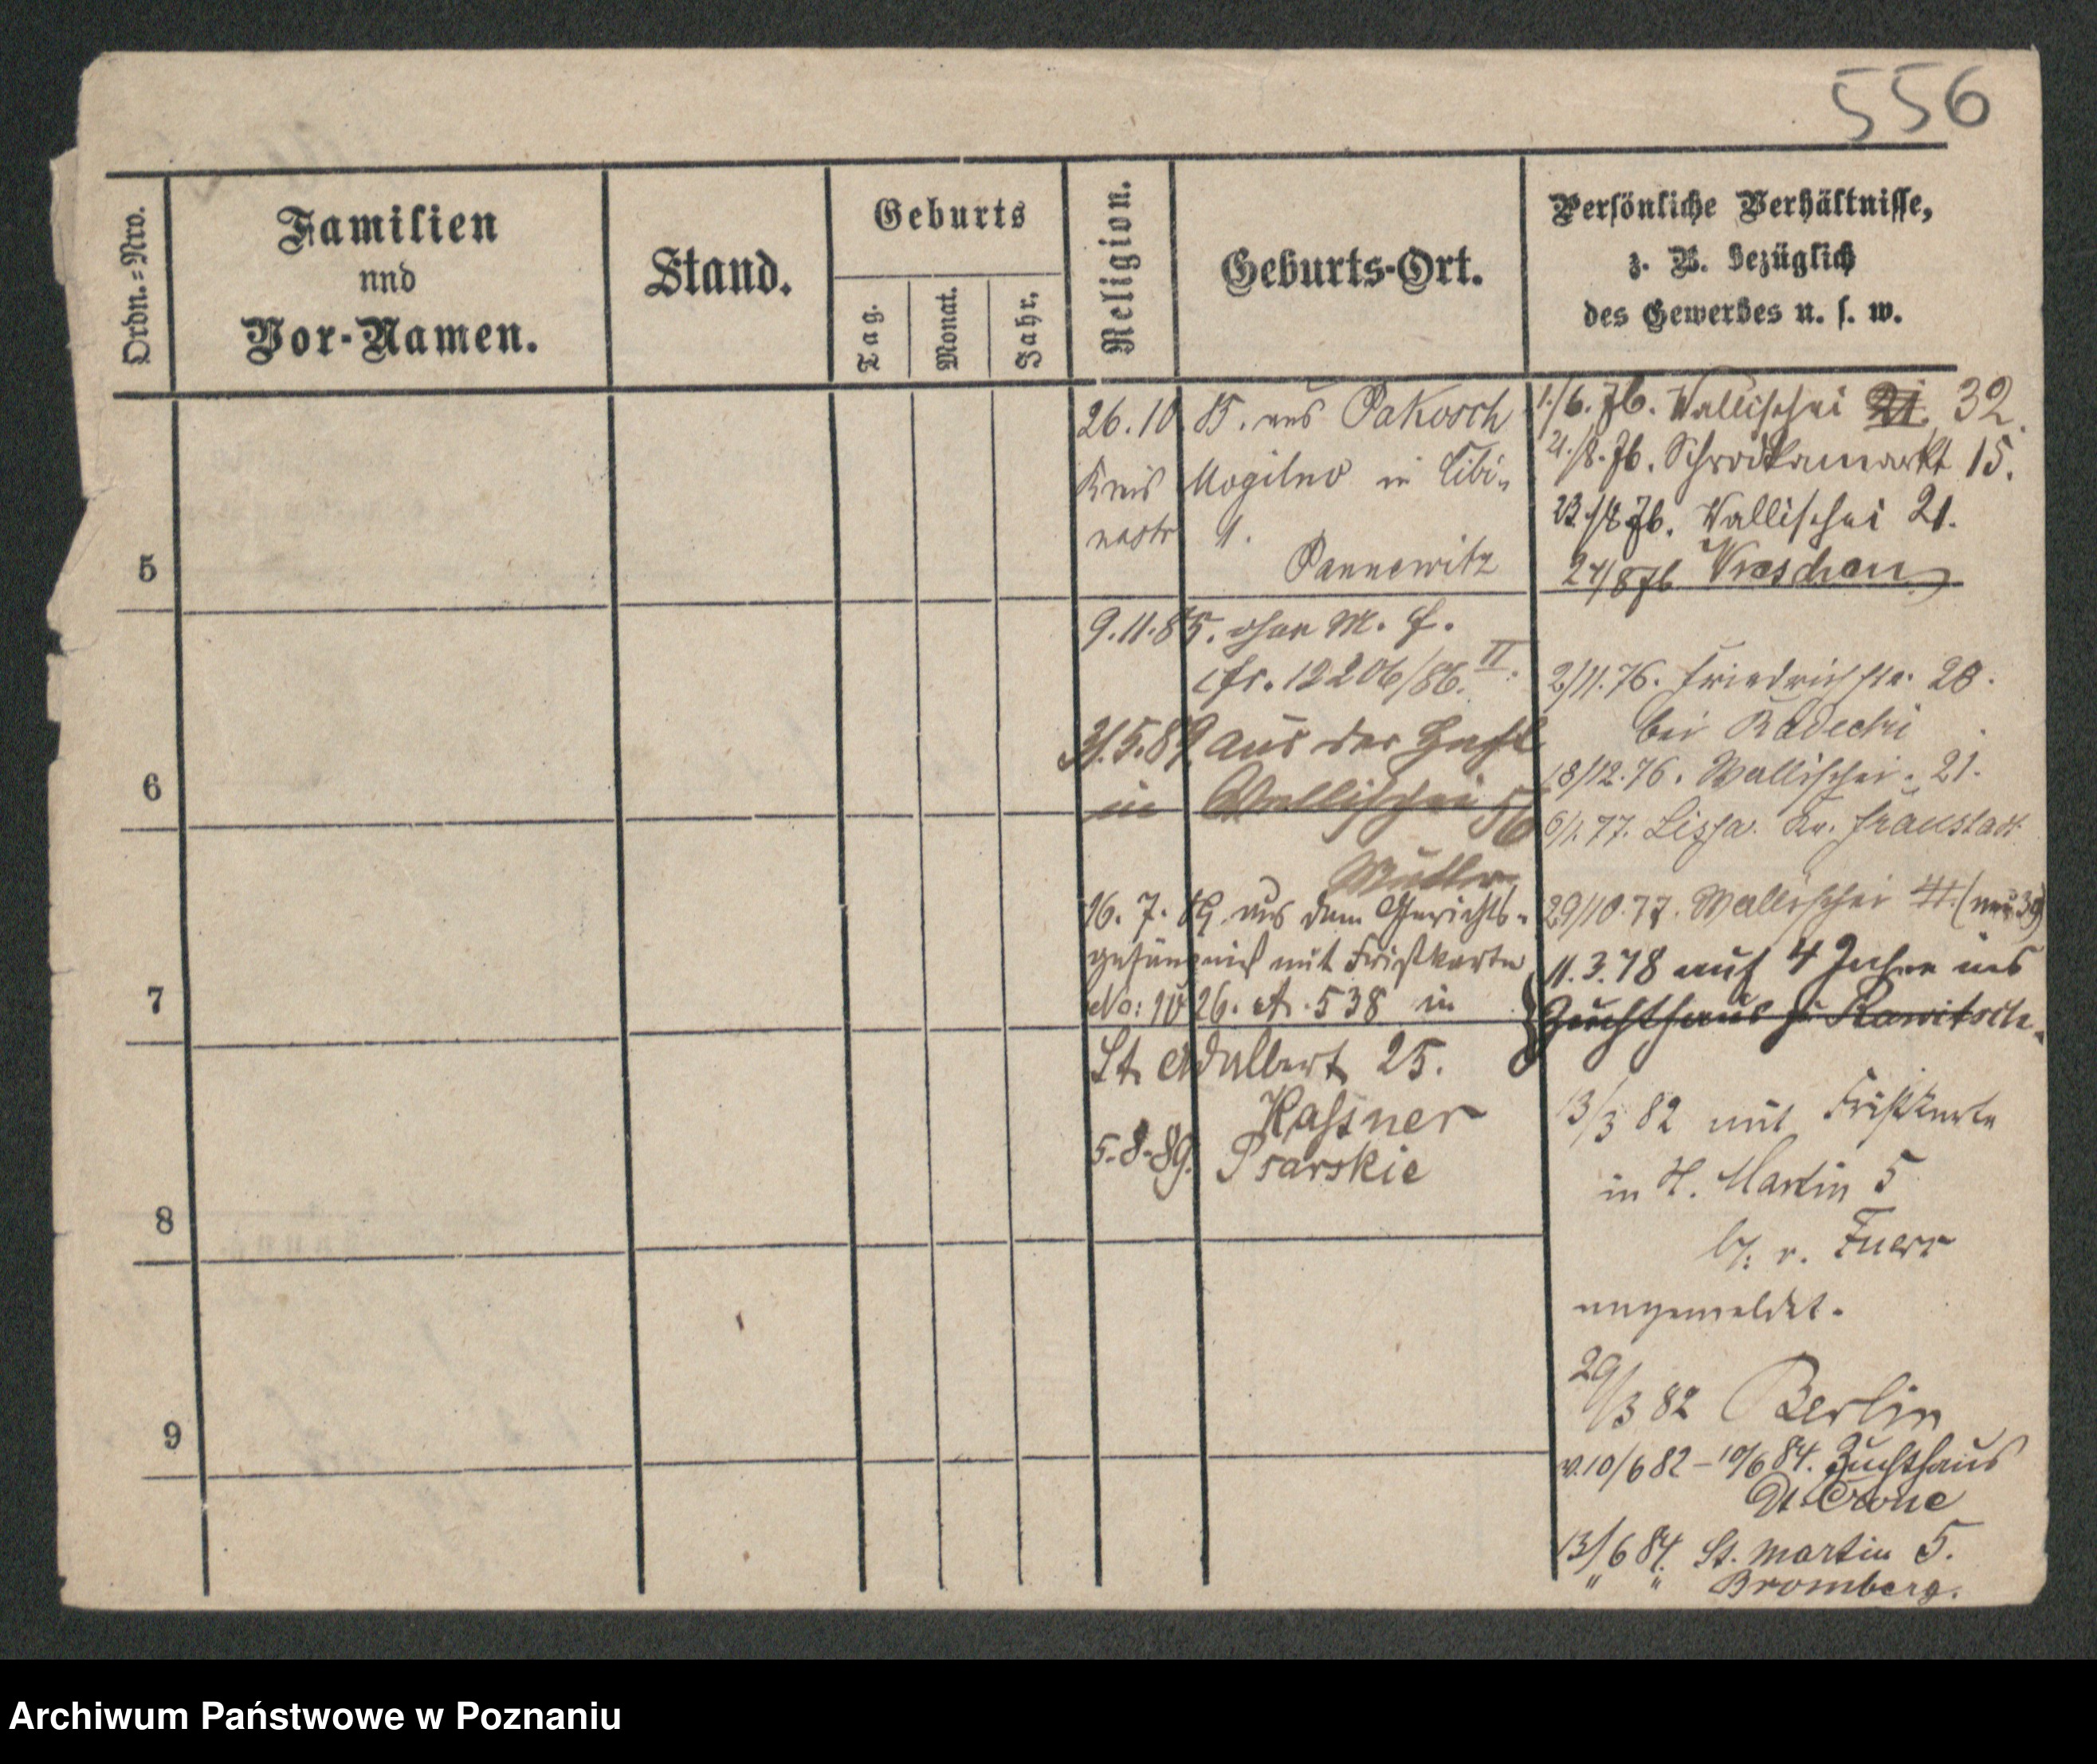 556
Ordn.=Nro.
Familien
und
Vor-Namen.
Stand.
Geburts
Tag.
Monat.
Jahr.
Religion.
Geburts-Ort.
Persönliche Verhältnisse,
z. B. bezüglich
des Gewerbes u. s. w.
5
6
7
8
9
26.10 85. aus Pakosch
Kreis Mogilno in Bibi-
nastr 1.
Pannewitz
9.11.85. ohne M. f.
cfr. 12206/86. II.
31.5.89 aus der Haft
in Wallischei 56
Müller
16. 7. 89 aus dem Gerichts-
gefängniß mit Fristkarte
No: 1026. 538 in
St. Adalbert 25.
Kassner
5.8.89. Psarskie
1./6.76. Wallischei 21. 32.
21./8.76. Schrodkamarkt 15.
23./8.76. Wallischei 21.
24/8 76 Wreschen
2/11.76. Friedrichstr. 20.
bei Radecki
18/12.76. Wallischei 21.
6/1.77. Lissa. Kr. Fraustadt
29/10.77. Wallischei 41. (neu 39)
11.3.78 auf 4 Jahre ins
Zuchthaus zu Rawitsch.
13/3 82 mit Fristkarte
in St. Martin 5
b. v. Fuerr
angemeldet.
29/3 82 Berlin
v.10/6 82 - 10/6 84. Zuchthaus
Dt. Crone
13/6 84. St. Martin 5.
" " Bromberg.
Archiwum Państwowe w Poznaniu